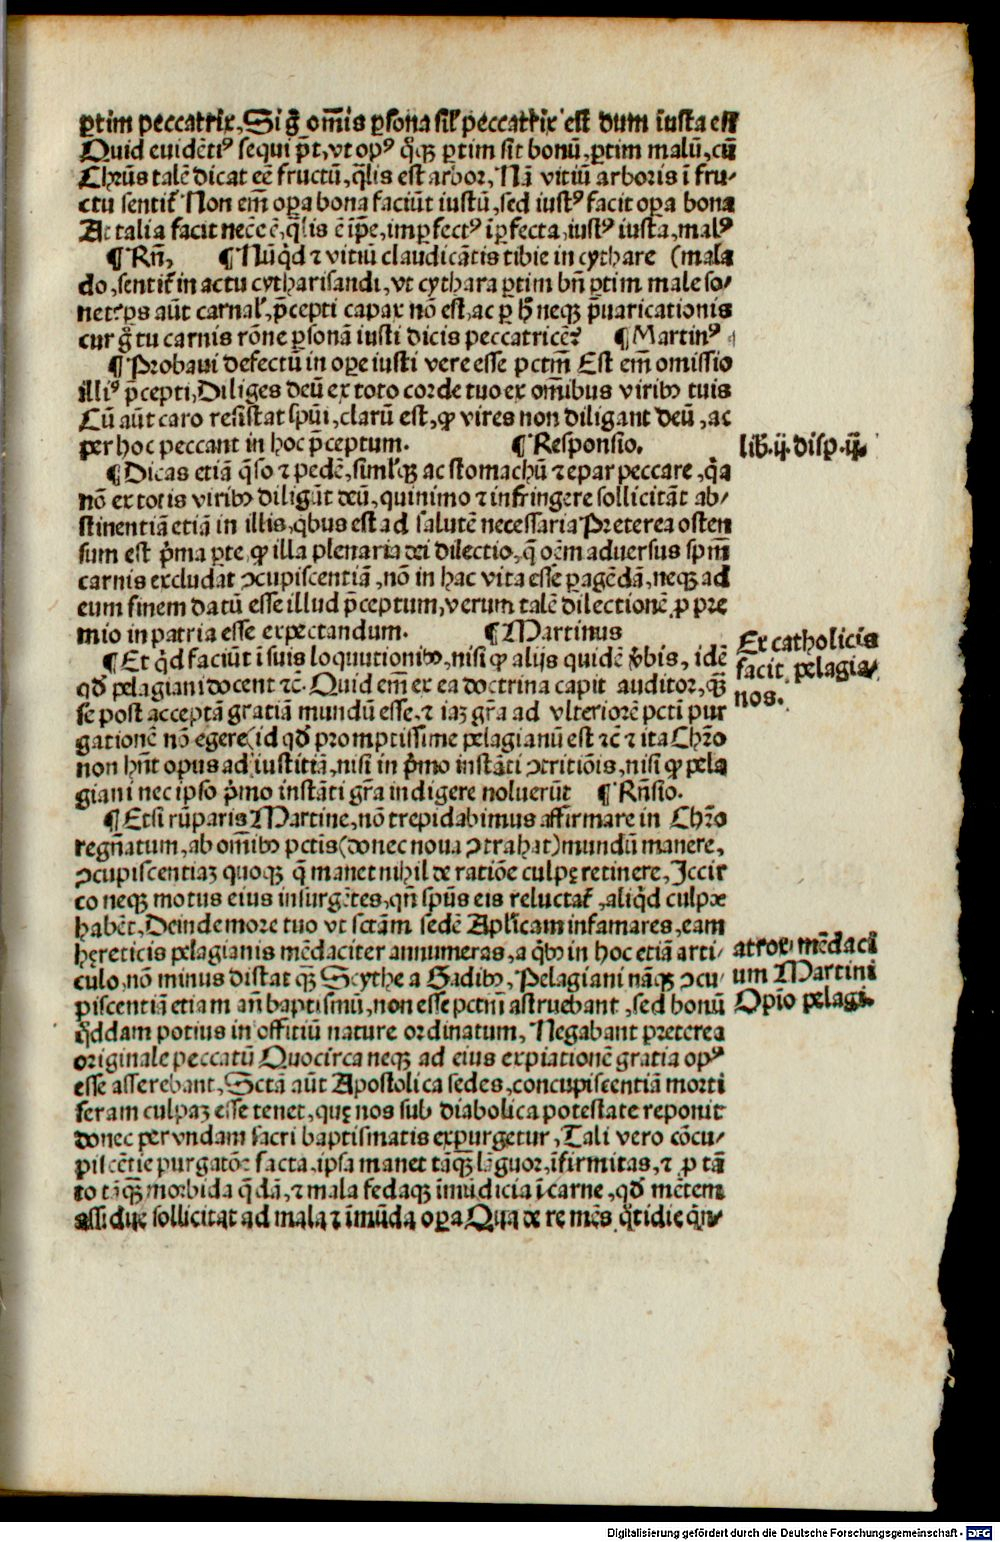 ꝑtim peccatrix, Si g̃ om̃is ꝑsona sil̃ peccatrix est dum iusta est
Quid euidẽtiꝰ sequi p̃t, vt opꝰ q̃qꝫ ꝑtim sit bonũ, ꝑtim malũ, cũ
Chrũs talẽ dicat eẽ fructũ, q̃lis est arbor, Nã vitiũ arboris ĩ fru⸗
ctu sentit̃ Non em̃ oꝑa bona faciũt iustũ, sed iustꝰ facit oꝑa bona
Ac talia facit necẽ ẽ, q̃lis ẽ ip̃e, imꝑfectꝰ ĩꝑfecta, iustꝰ iusta, malꝰ
¶ Rñ, ¶ Nũq̃d ⁊ vitiũ claudicãtis tibie in cythare (mala
do, sentit̃ in actu cytharisandi, vt cythara ꝑtim bñ ꝑtim male so⸗
net: ꝑs aũt carnal̃, p̃cepti capax nõ est, ac ꝑ h̃ neqꝫ p̃uaricationis
cur g̃ tu carnis rõne ꝑsonã iusti dicis peccatricẽ? ¶ Martinꝰ
¶ Probaui defectũ in oꝑe iusti vere esse pctm̃ Est em̃ omissio
illiꝰ p̃cepti, Diliges deũ ex toto corde tuo ex om̃ibus viribꝰ tuis
Cũ aũt caro resistat spũi, clarũ est, ꝙ vires non diligant deũ, ac
per hoc peccant in hoc p̃ceptum. ¶ Responsio.
lib. ij. disp. ij.
¶ Dicas etiã q̃so ⁊ pedẽ, siml̃qꝫ ac stomachũ ⁊ epar peccare, q̃a
nõ ex totis viribꝰ diligũt deũ, quinimo ⁊ infringere sollicitãt ab⸗
stinentiã etiã in illis, q̃bus est ad salutẽ necessaria Preterea osten
sum est p̃ma ꝑte ꝙ illa plenaria dei dilectio, q̃ oẽm aduersus spm̃
carnis excludat ꝯcupiscentiã, nõ in hac vita esse ꝑagẽdã, neqꝫ ad
eum finem datũ esse illud p̃ceptum, verum talẽ dilectionẽ ꝓ pre
mio in patria esse expectandum. ¶ Martinus
Ex catholicis
facit pelagia⸗
nos.
¶ Et q̃d faciũt ĩ suis loquutionibꝰ, nisi ꝙ alijs quidẽ v̓bis, idẽ
qd̃ pelagiani docent ⁊c̃. Quid em̃ ex ea doctrina capit auditor, qꝫ̃
se post acceptã gratiã mundũ esse, ⁊ iaꝫ gr̃a ad vlteriorẽ pcti pur
gationẽ nõ egere (id qd̃ promptissime pelagianũ est ⁊c̃ ⁊ ita Chrõ
non hñt opus ad iustitiã, nisi in p̃mo instãti ꝯtritiõis, nisi ꝙ pela
giani nec ipso p̃mo instãti gr̃a indigere noluerũt ¶ Rñsio.
¶ Etsi rũparis Martine, nõ trepidabimus affirmare in Chrõ
regñatum, ab om̃ibꝰ pctis (donec noua ꝯtrahat) mundũ manere,
ꝯcupiscentiaꝫ quoqꝫ q̃ manet nihil de ratiõe culpę retinere, Iccir
co neqꝫ motus eius insurgẽtes, qñ spũs eis reluctat̃, aliq̃d culpæ
habẽt, Deinde more tuo vt sctãm sedẽ Apl̃icam infamares, eam
hęreticis pelagianis mẽdaciter annumeras, a q̃bꝰ in hoc etiã arti⸗
culo, nõ minus distat qꝫ̃ Scythe a Gadibꝰ, Pelagiani nãqꝫ ꝯcu⸗
piscentiã etiam añ baptismũ, non esse pctm̃ astruebant, sed bonũ
atrox mẽdaci
um Martini
Opio pelagi.
q̃ddam potius in offitiũ nature ordinatum, Negabant preterea
originale peccatũ Quocirca neqꝫ ad eius expiationẽ gratia opꝰ
esse asserebant, Sctã aũt Apostolica sedes, concupiscentiã morti
feram culpaꝫ esse tenet, quę nos sub diabolica potestate reponit
donec per vndam sacri baptismatis expurgetur, Tali vero cõcu⸗
piscẽtie purgatõe facta, ipsa manet tãqꝫ̃ lãguor, ĩfirmitas, ⁊ ꝓ tã
to tãqꝫ̃ morbida q̃dã, ⁊ mala fedaqꝫ ĩmũdicia ĩ carne, qd̃ mẽtem
assidue sollicitat ad mala ⁊ ĩmũda oꝑa Qua de re mẽs q̃tidie
Digitalisierung gefördert durch die Deutsche Forschungsgemeinschaft - DFG